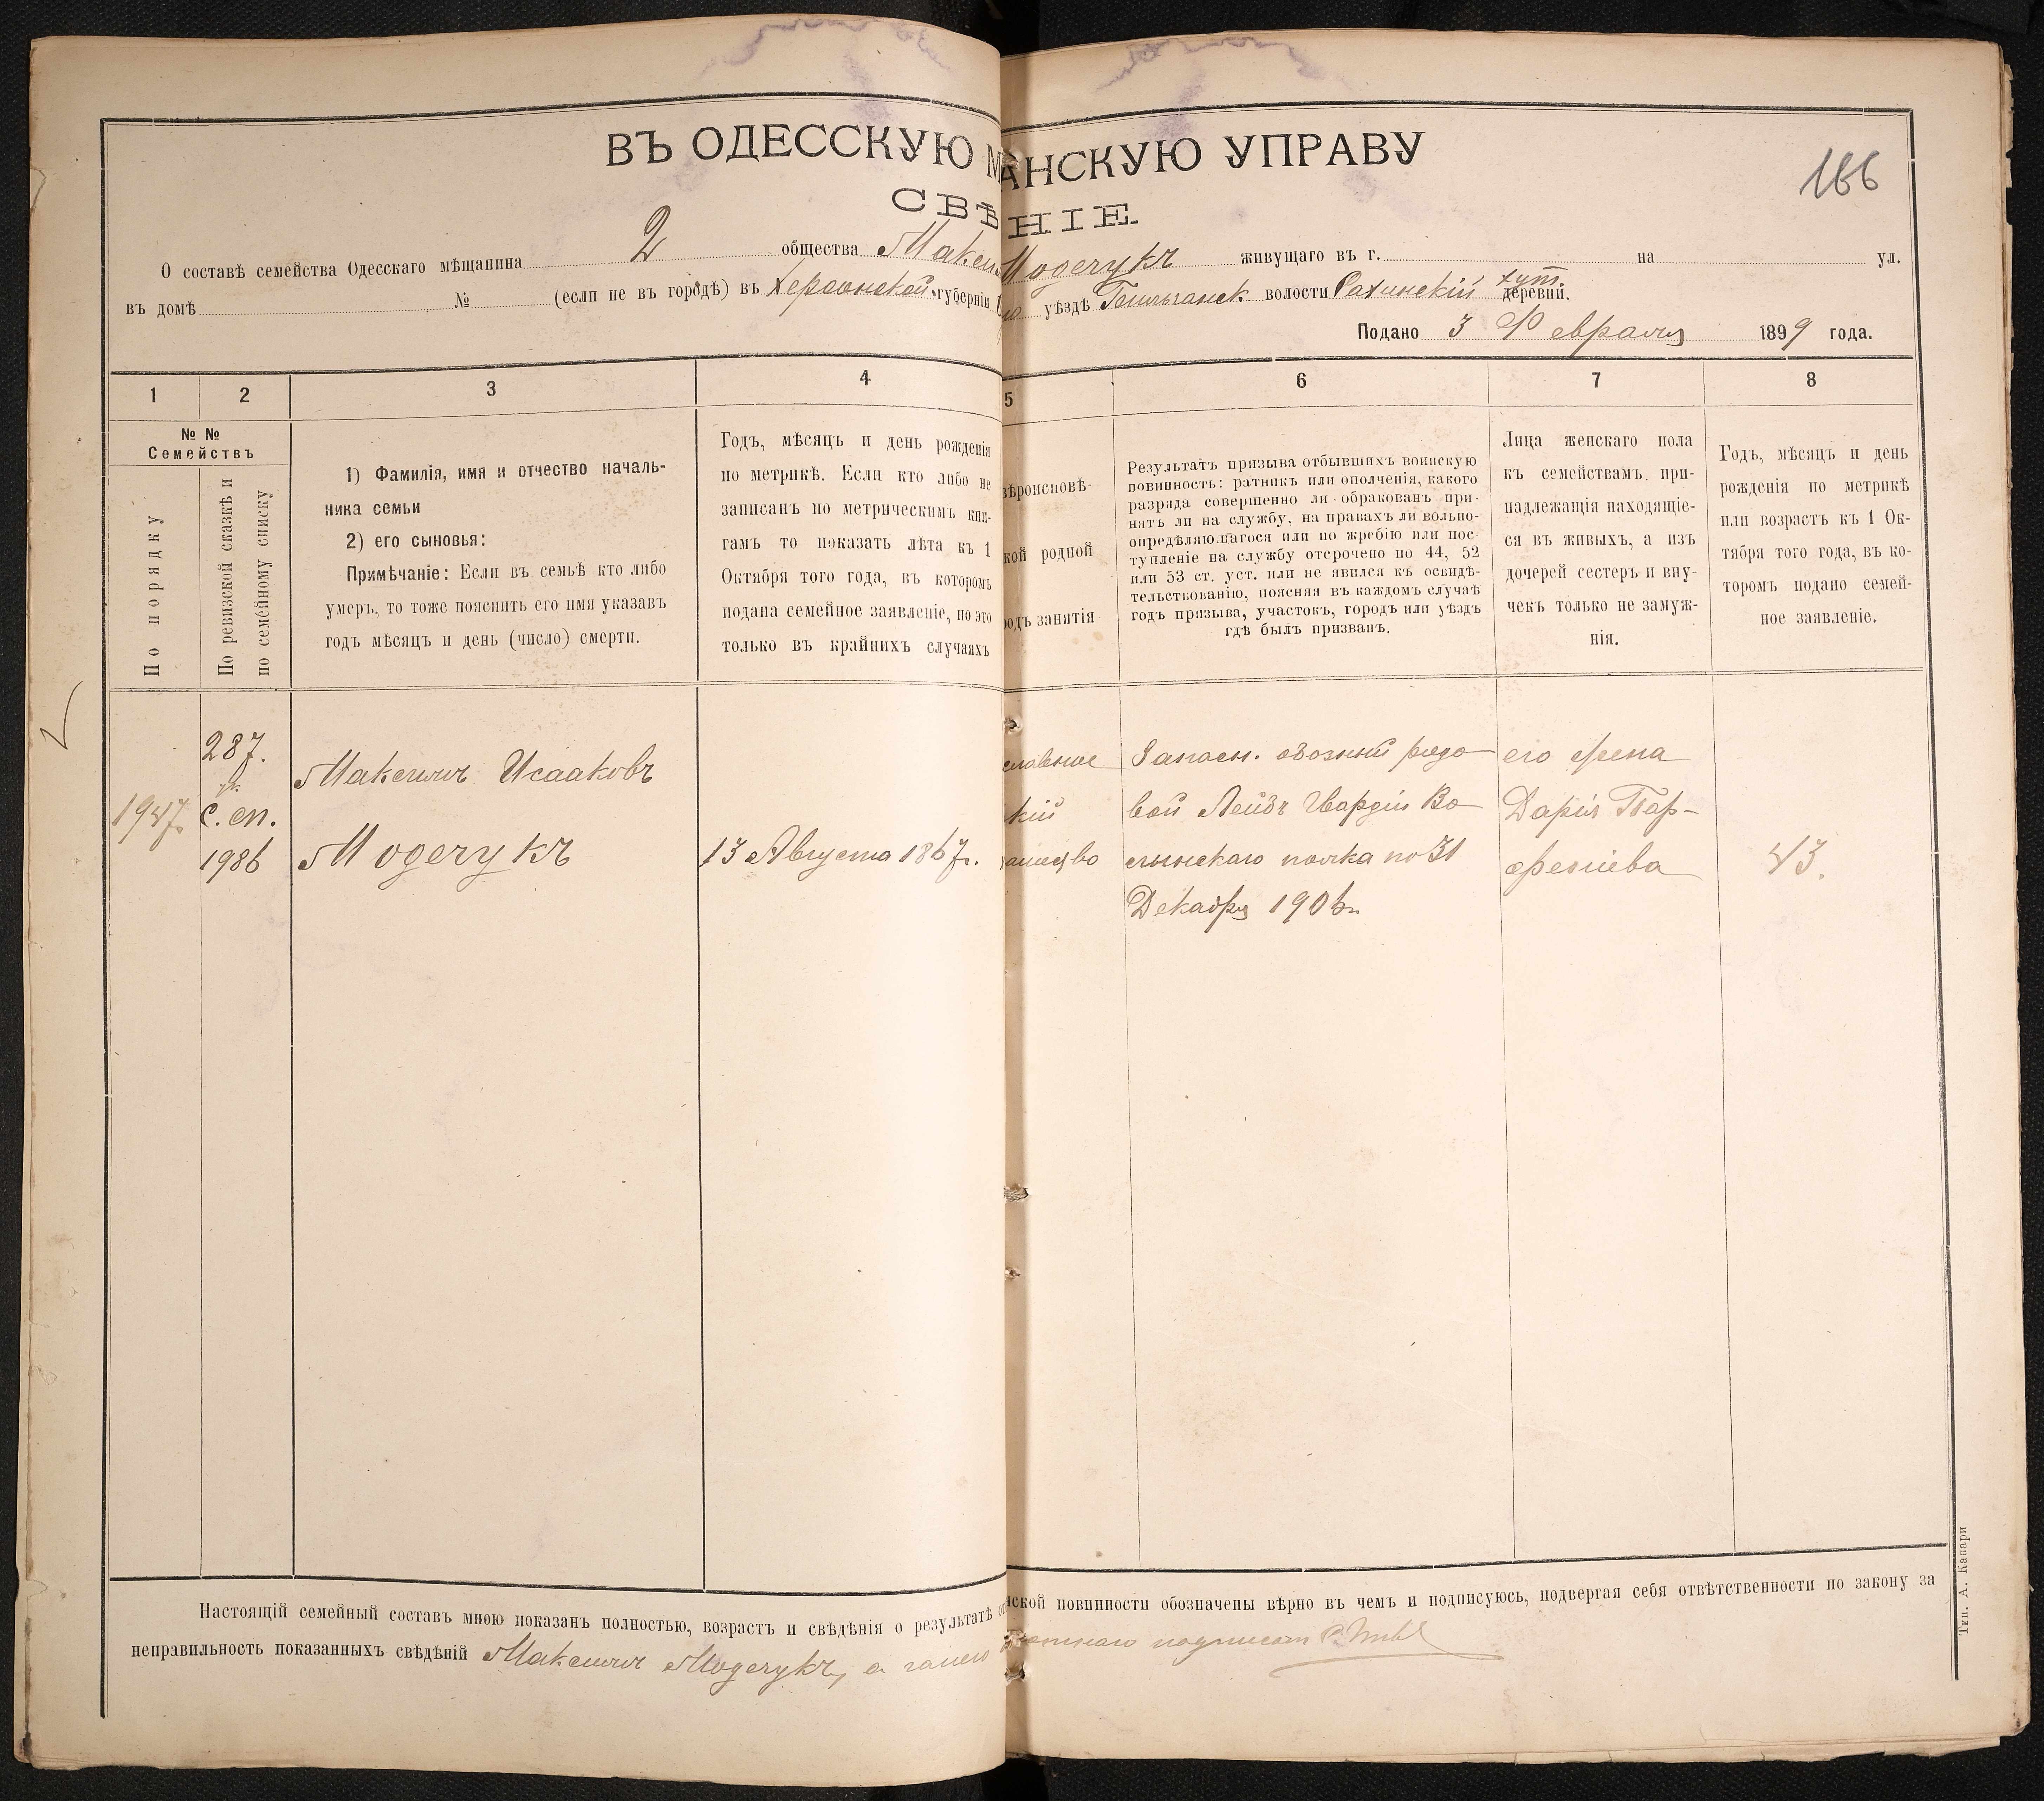 ВЪ ОДЕССКУЮ М АНСКУЮ УПРАВУ
166
СВѢ НІЕ.
О составѣ семейства Одесскаго мѣщанина 2 общества Максим Модечукъ живущаго въ г. на ул.
въ домѣ № (если не въ городѣ) въ Херсонской губерніи уѣздѣ волости хут. деревни.
Подано 3 Февраля 1899 года.
1 2 3 4 5 6 7 8
№ №
Семействъ
По порядку
По ревизской сказкѣ и
по семейному списку
1) Фамилія, имя и отчество началь-
ника семьи
2) его сыновья:
Примѣчаніе: Если въ семьѣ кто либо
умеръ, то тоже пояснить его имя указавъ
годъ мѣсяцъ и день (число) смерти.
Годъ, мѣсяцъ и день рожденія
по метрикѣ. Если кто либо не
записанъ по метрическимъ кни-
гамъ то показать лѣта къ 1
Октября того года, въ которомъ
подана семейное заявленіе, но это
только въ крайнихъ случаяхъ
вѣроисповѣ-
кой родной
одъ занятія
Результатъ призыва отбывшихъ воинскую
повинность: ратникъ или ополченія, какого
разряда совершенно ли обракованъ при-
нятъ ли на службу, на правахъ ли вольно-
опредѣляющагося или по жребію или пос-
тупленіе на службу отсрочено по 44, 52
или 53 ст. уст. или не явился къ освидѣ-
тельствованію, поясняя въ каждомъ случаѣ
годъ призыва, участокъ, городъ или уѣздъ
гдѣ былъ призванъ.
Лица женскаго пола
къ семействамъ при-
надлежащія находящіе-
ся въ живыхъ, а изъ
дочерей сестеръ и вну-
чекъ только не замуж-
нія.
Годъ, мѣсяцъ и день
рожденія по метрикѣ
или возрастъ къ 1 Ок-
тября того года, въ ко-
торомъ подано семей-
ное заявленіе.
1947.
287.
с. сп.
1986
Максимъ Исааковъ
Модечукъ
13 Августа 1867г.
славное
кій
Запасн. обозный рядо
вой Лейбъ Гвардіи Во
лынскаго полка по 31
Декабря 1906г.
его жена
Дарія Пар-
феніева
43.
Настоящій семейный составъ мною показанъ полностью, возрастъ и свѣдѣнія о результатѣ от нской повинности обозначены вѣрно въ чемъ и подписуюсь, подвергая себя отвѣтственности по закону за
неправильность показанныхъ свѣдѣній Максимъ Модечукъ, а
Тип. А. Капари